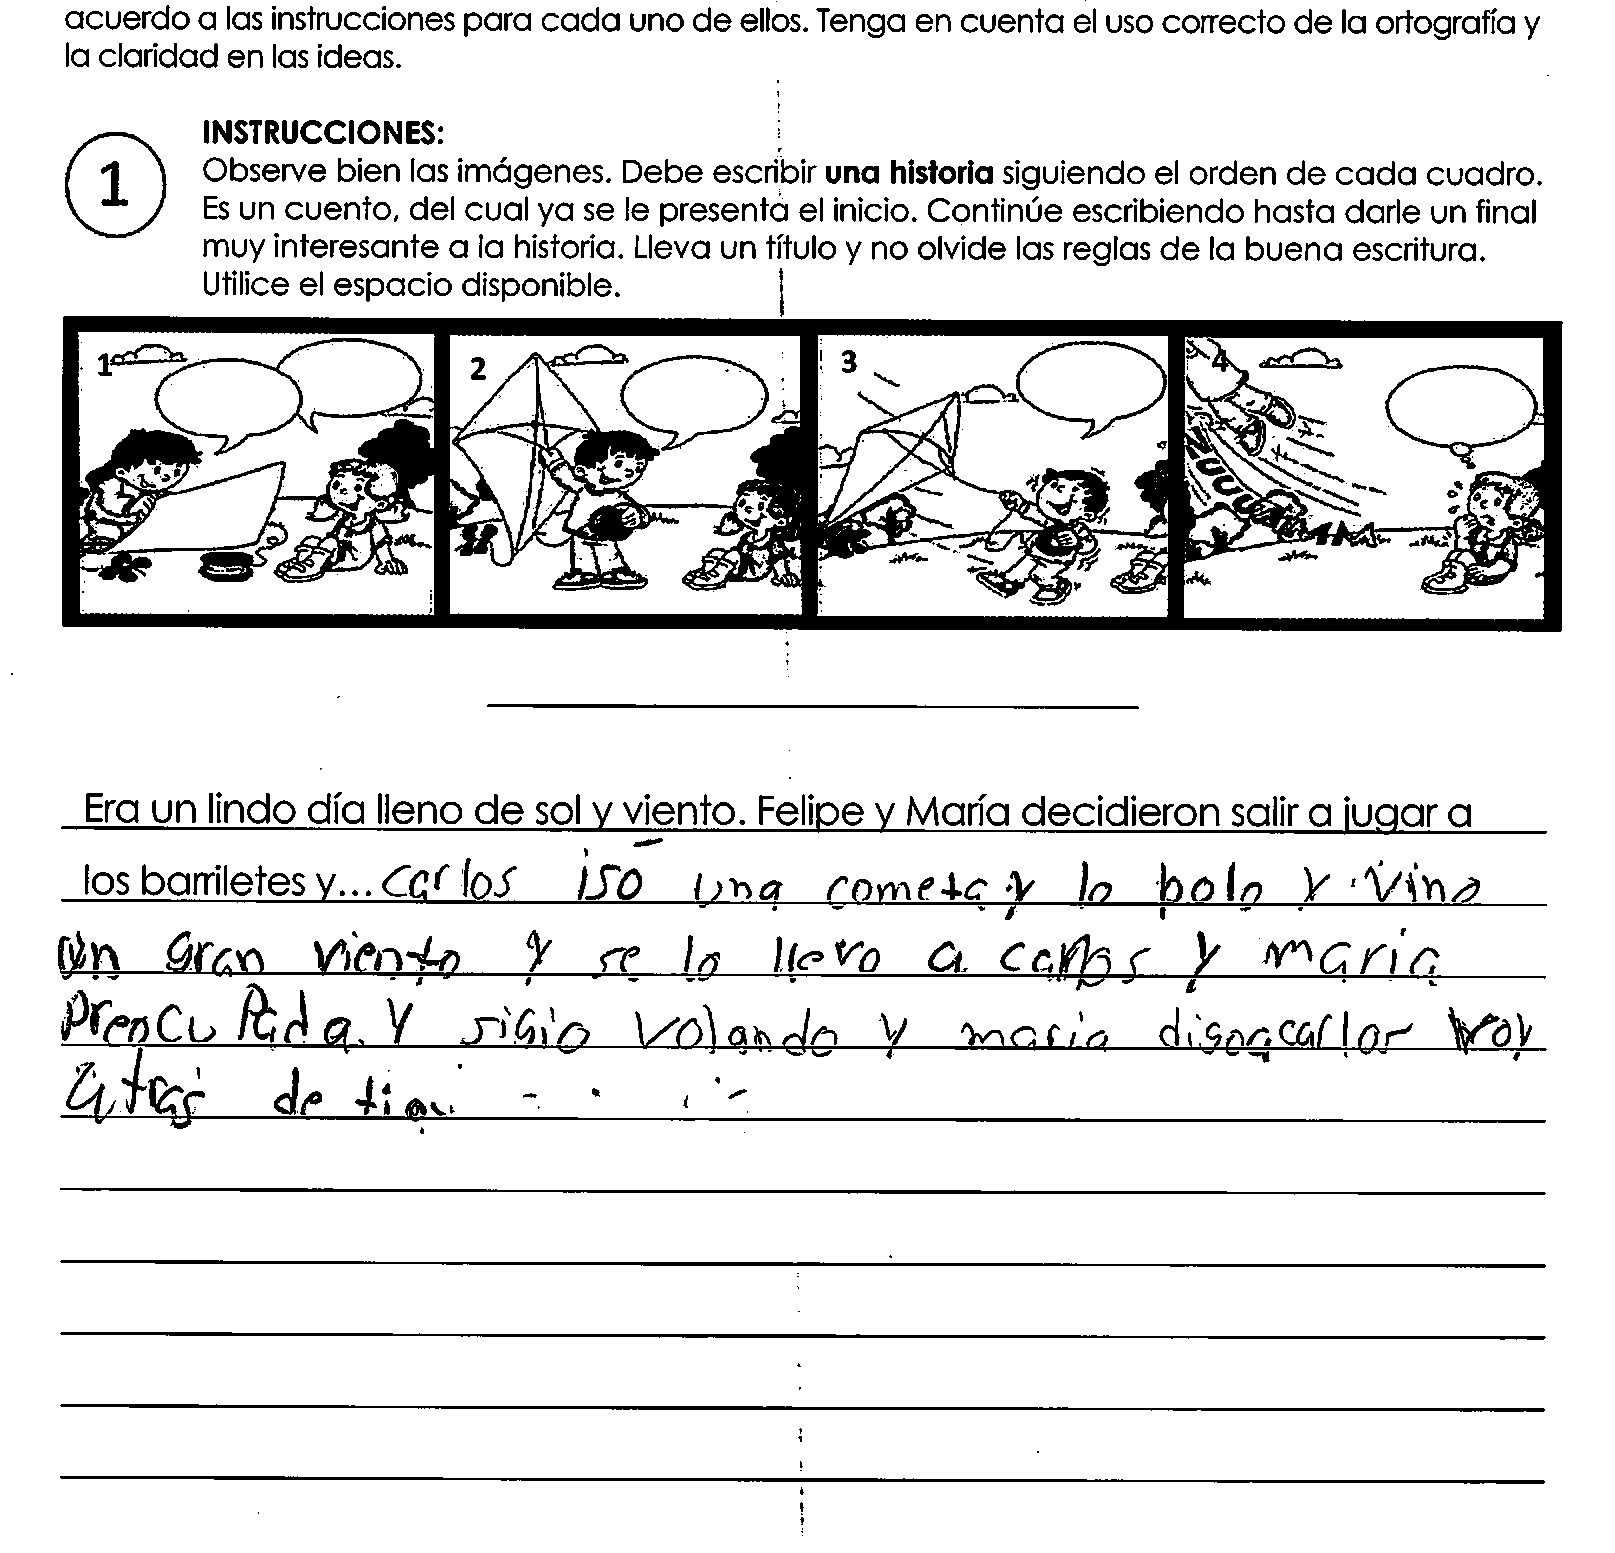 acuerdo a las instrucciones para cada uno de ellos. Tenga en cuenta el uso correcto de la ortografía y
la claridad en las ideas.
1
INSTRUCCIONES:
Observe bien las imágenes. Debe escribir una historia siguiendo el orden de cada cuadro.
Es un cuento, del cual ya se le presenta el inicio. Continúe escribiendo hasta darle un final
muy interesante a la historia. Lleva un título y no olvide las reglas de la buena escritura.
Utilice el espacio disponible.
1 2 3 4
Era un lindo día lleno de sol y viento. Felipe y María decidieron salir a jugar a
los barriletes y... carlos iso una cometa y lo bolo y vino
un gran viento y se lo llevo a carlos y maria
Preocupada y sigio volando y maria
atras de